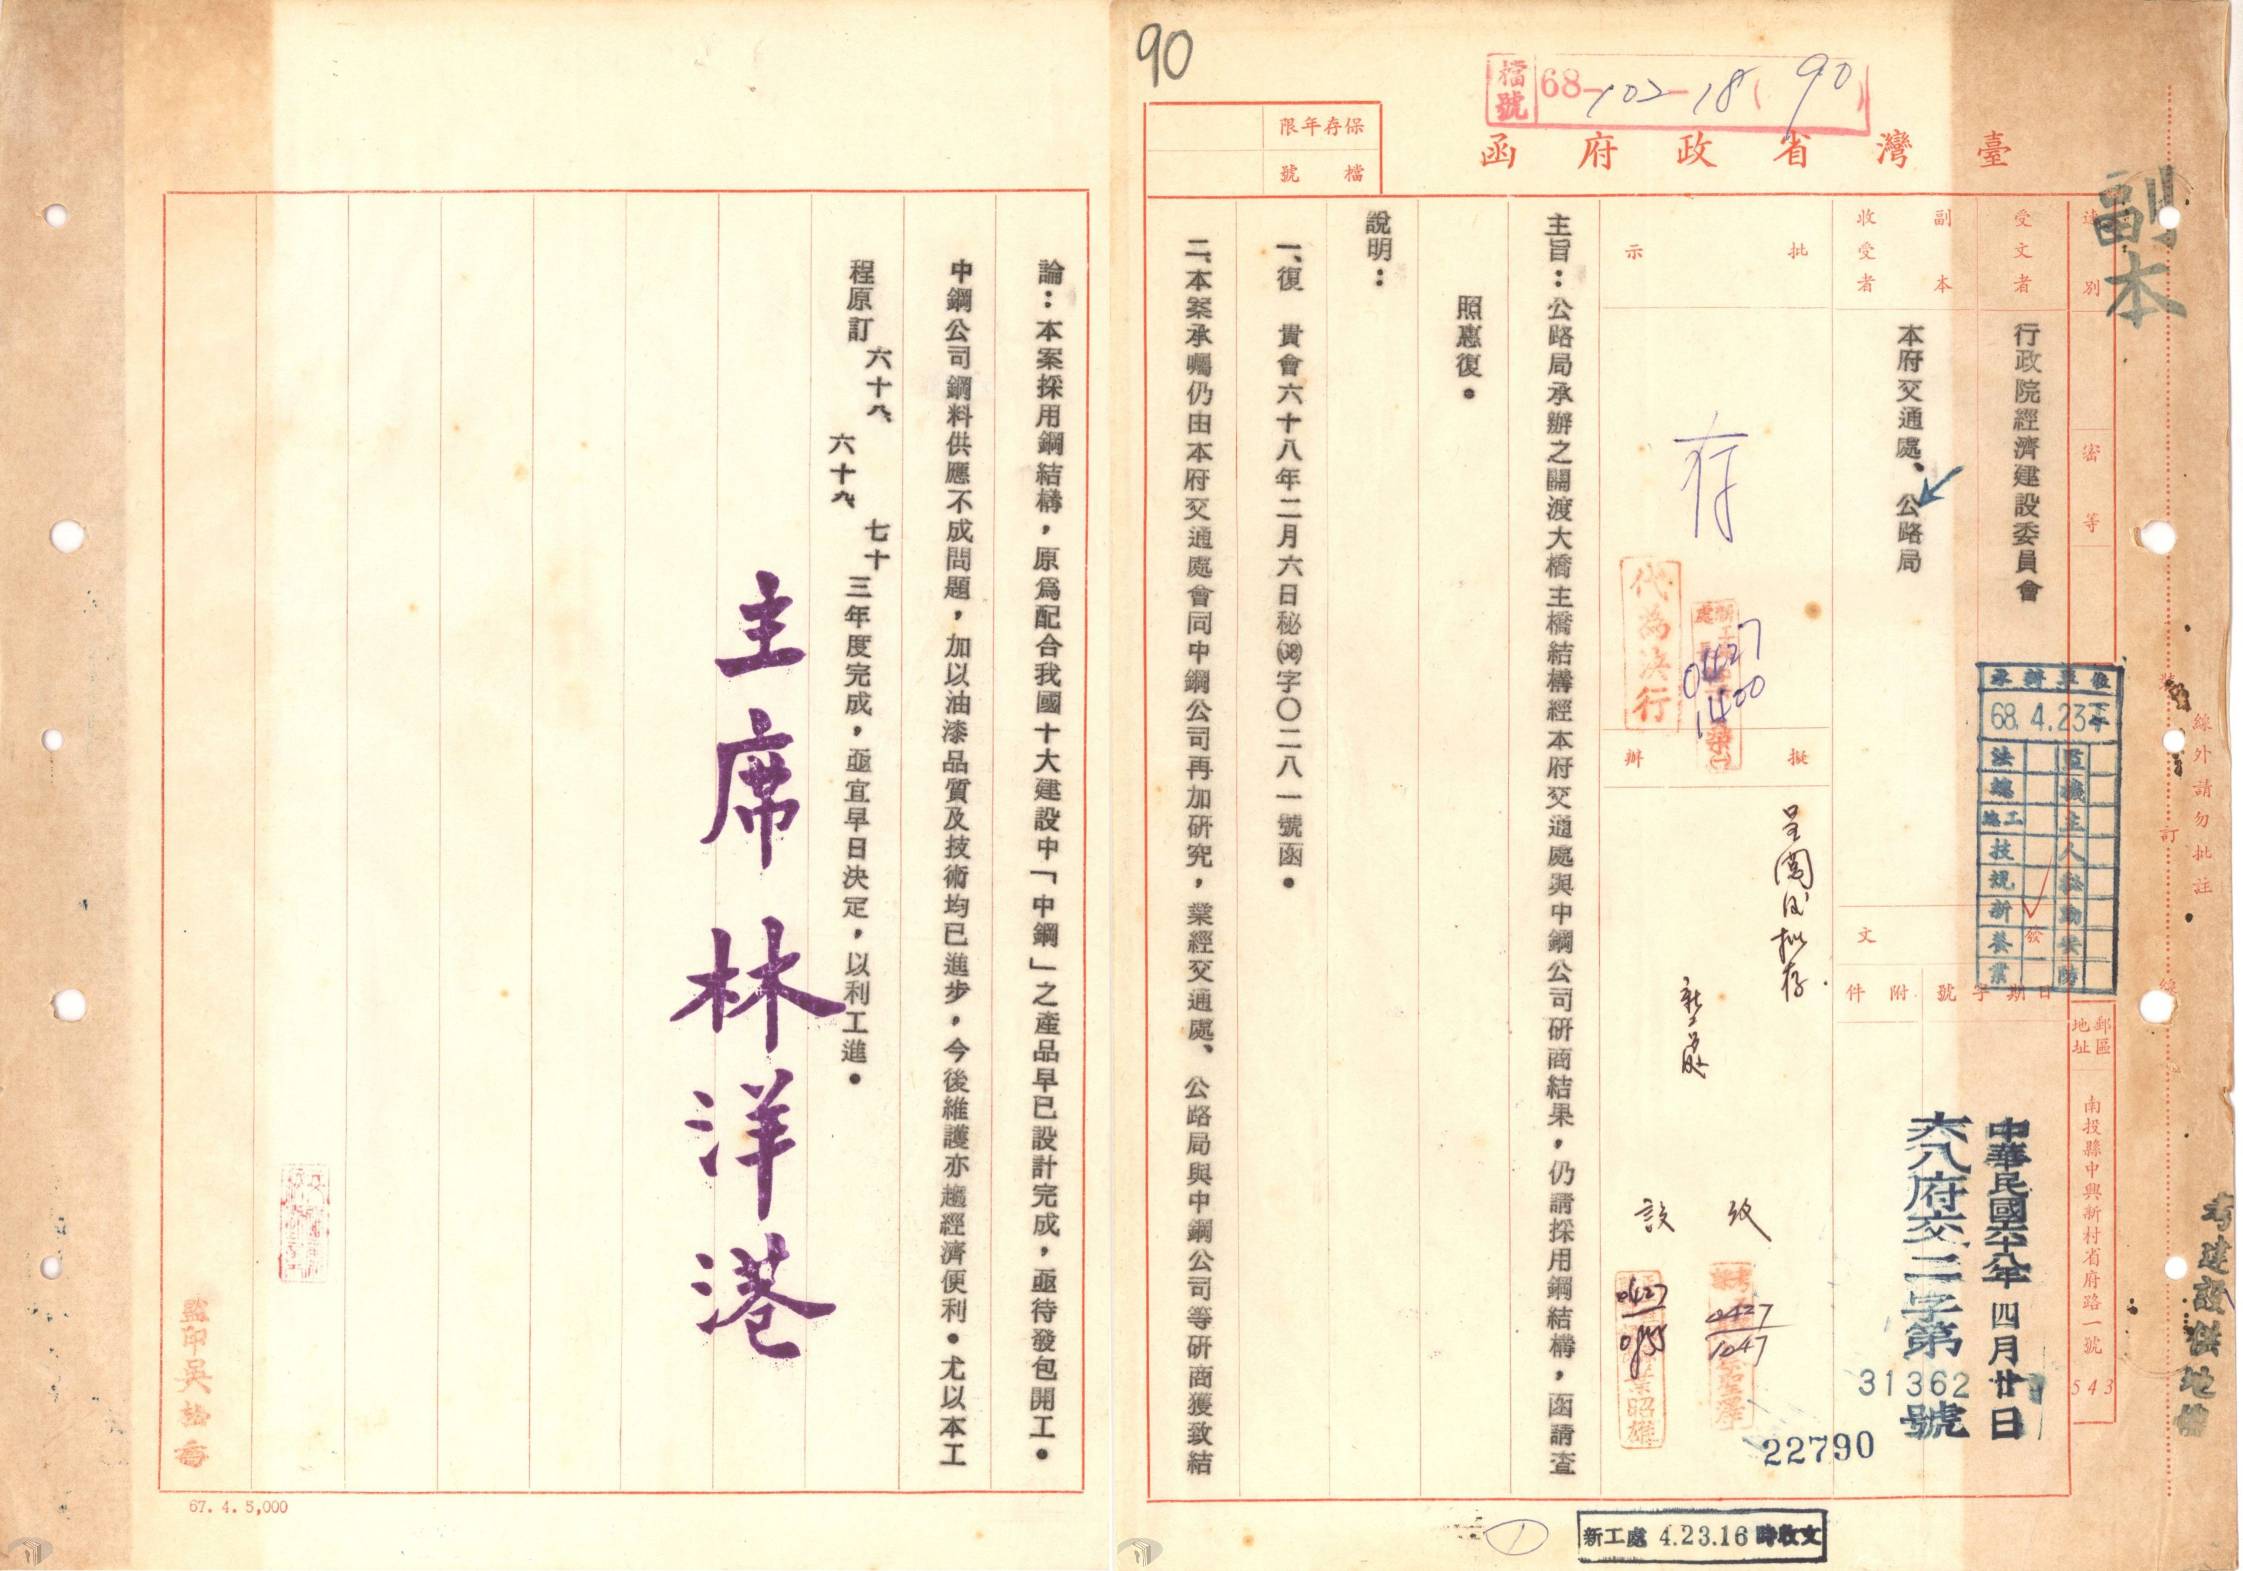 90
檔號 68-102-18(90)
臺灣省政府函
保存年限
檔號
副本
速別
密等
受文者
行政院經濟建設委員會
副本收受者
本府交通處、公路局
批示
存
代為決行
0427
1400
擬辦
呈閱後擬存.
發文
日期
字號
附件
中華民國六十八年四月廿日
六八府交二字第31362號
22790
郵區
地址
南投縣中興新村省府路一號
543
裝
訂
線
線外請勿批註
承辦單位
68.4.23下午
0427
1047
0427
0955
主旨：公路局承辦之關渡大橋主橋結構經本府交通處與中鋼公司研商結果，仍請採用鋼結構，函請查
照惠復。
說明：
一、復　貴會六十八年二月六日秘(68)字〇二八一號函。
二、本案承囑仍由本府交通處會同中鋼公司再加研究，業經交通處、公路局與中鋼公司等研商獲致結
論：本案採用鋼結構，原為配合我國十大建設中「中鋼」之產品早已設計完成，亟待發包開工。
中鋼公司鋼料供應不成問題，加以油漆品質及技術均已進步，今後維護亦趨經濟便利。尤以本工
程原訂六十八、六十九、七十三年度完成，亟宜早日決定，以利工進。
主席林洋港
67. 4. 5,000
新工處 4.23.16時收文